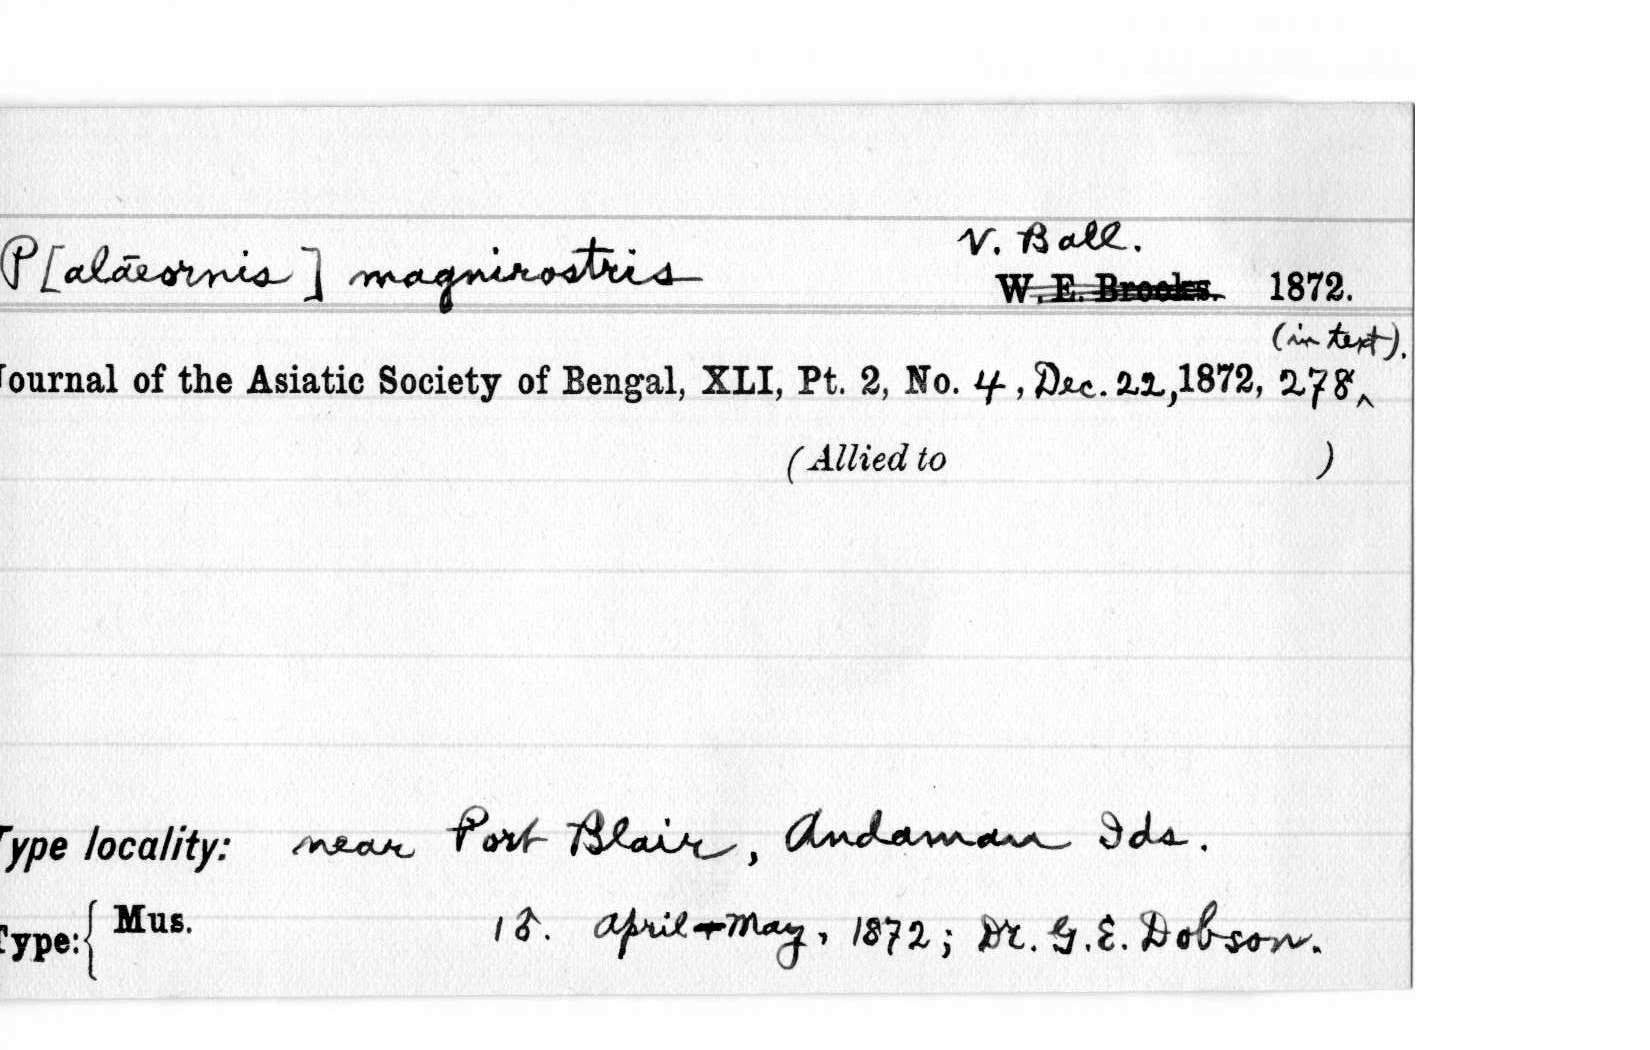 P[alaeornis] magnirostris
V. Ball.
W. E. Brooks. 1872.
(in text).
Journal of the Asiatic Society of Bengal, XLI, Pt. 2, No. 4, Dec. 22, 1872, 278^
(Allied to )
Type locality: near Port Blair, Andaman Ids.
Type: { Mus. 1♂. April + May, 1872; Dr. G. E. Dobson.